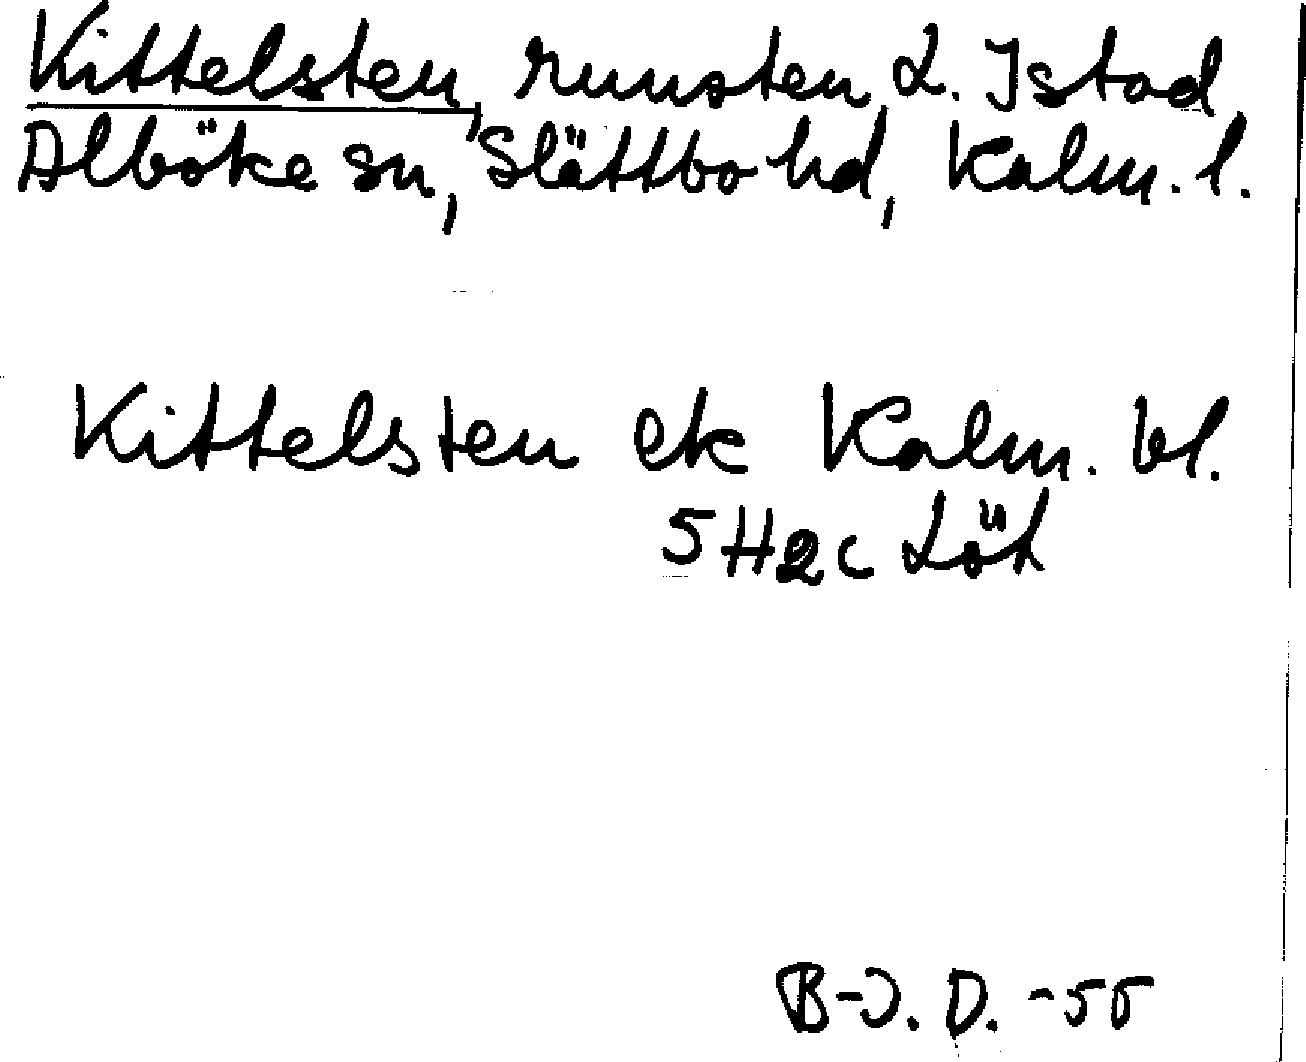 Kittelsten, runsten, L. Istad,
Alböke sn, Slättbo hd, Kalm. l.
Kittelsten ek Kalm. bl.
5H2c Löt
B-J. D. -55